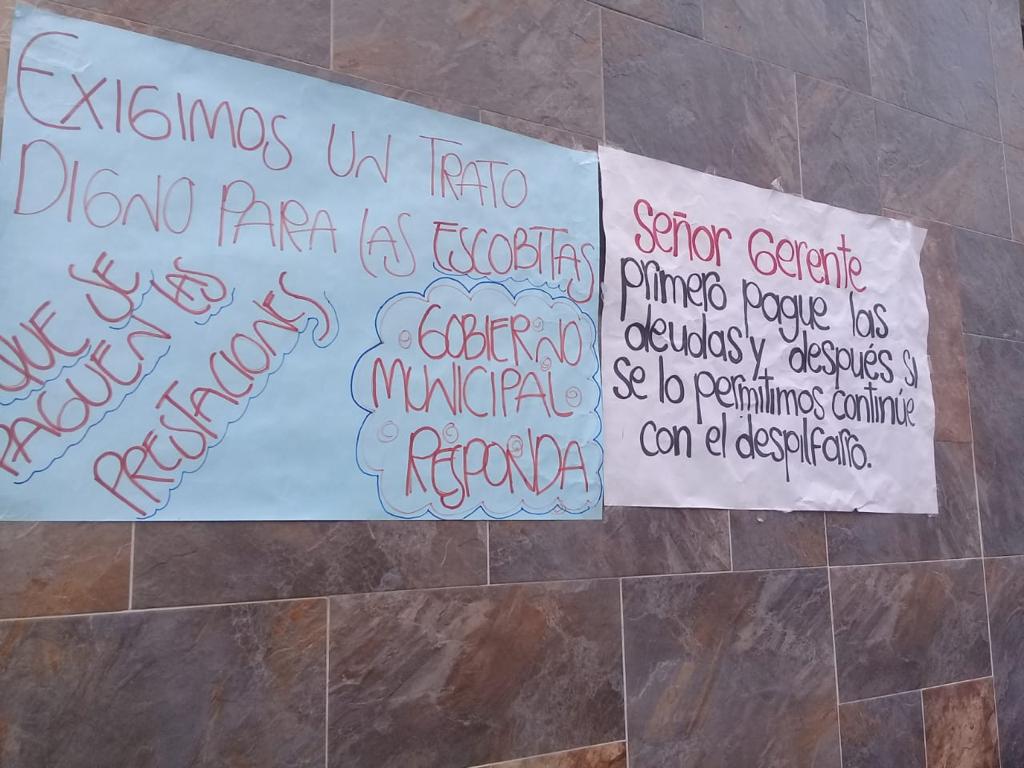 EXIGIMOS UN TRATO
DIGNO PARA LAS ESCOBITAS
QUE SE
PAGUEN LAS
PRESTACIONES
GOBIERNO
MUNICIPAL
RESPONDA
Señor Gerente
primero pague las
deudas y después si
se lo permitimos continúe
con el despilfarro.